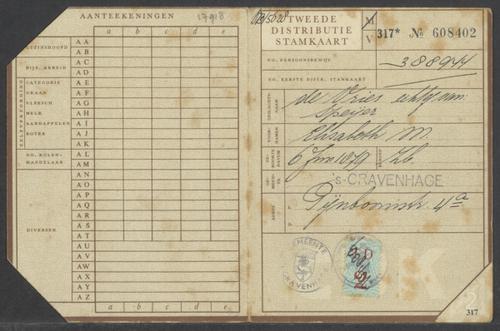 AANTEEKENINGEN
17918
a b c d e
GEZINSHOOFD
AA
AB
BIJZ. ARBEID
AC
AD
ZELFVERZORGING
CATEGORIE
AE
GRAAN
AF
VLEESCH
AG
MELK
AH
AARDAPPELEN
AI
BOTER
AJ
AK
NO. KOLEN-
HANDELAAR
AL
AM
AN
AO
AP
AQ
AR
DIVERSEN
AS
AT
AU
AV
AW
AX
AY
AZ
a b c d e
TWEEDE
DISTRIBUTIE
STAMKAART
M
V
317* № 608402
NO. PERSOONSBEWIJS
388944
NO. EERSTE DISTR. STAMKAART
de Vries echtg. van
Speijer
Elisabeth M.
6 Juni
's-GRAVENHAGE
Pijnboomstr. 4a
GEMEENTE
'S GRAVENHAGE
2
317